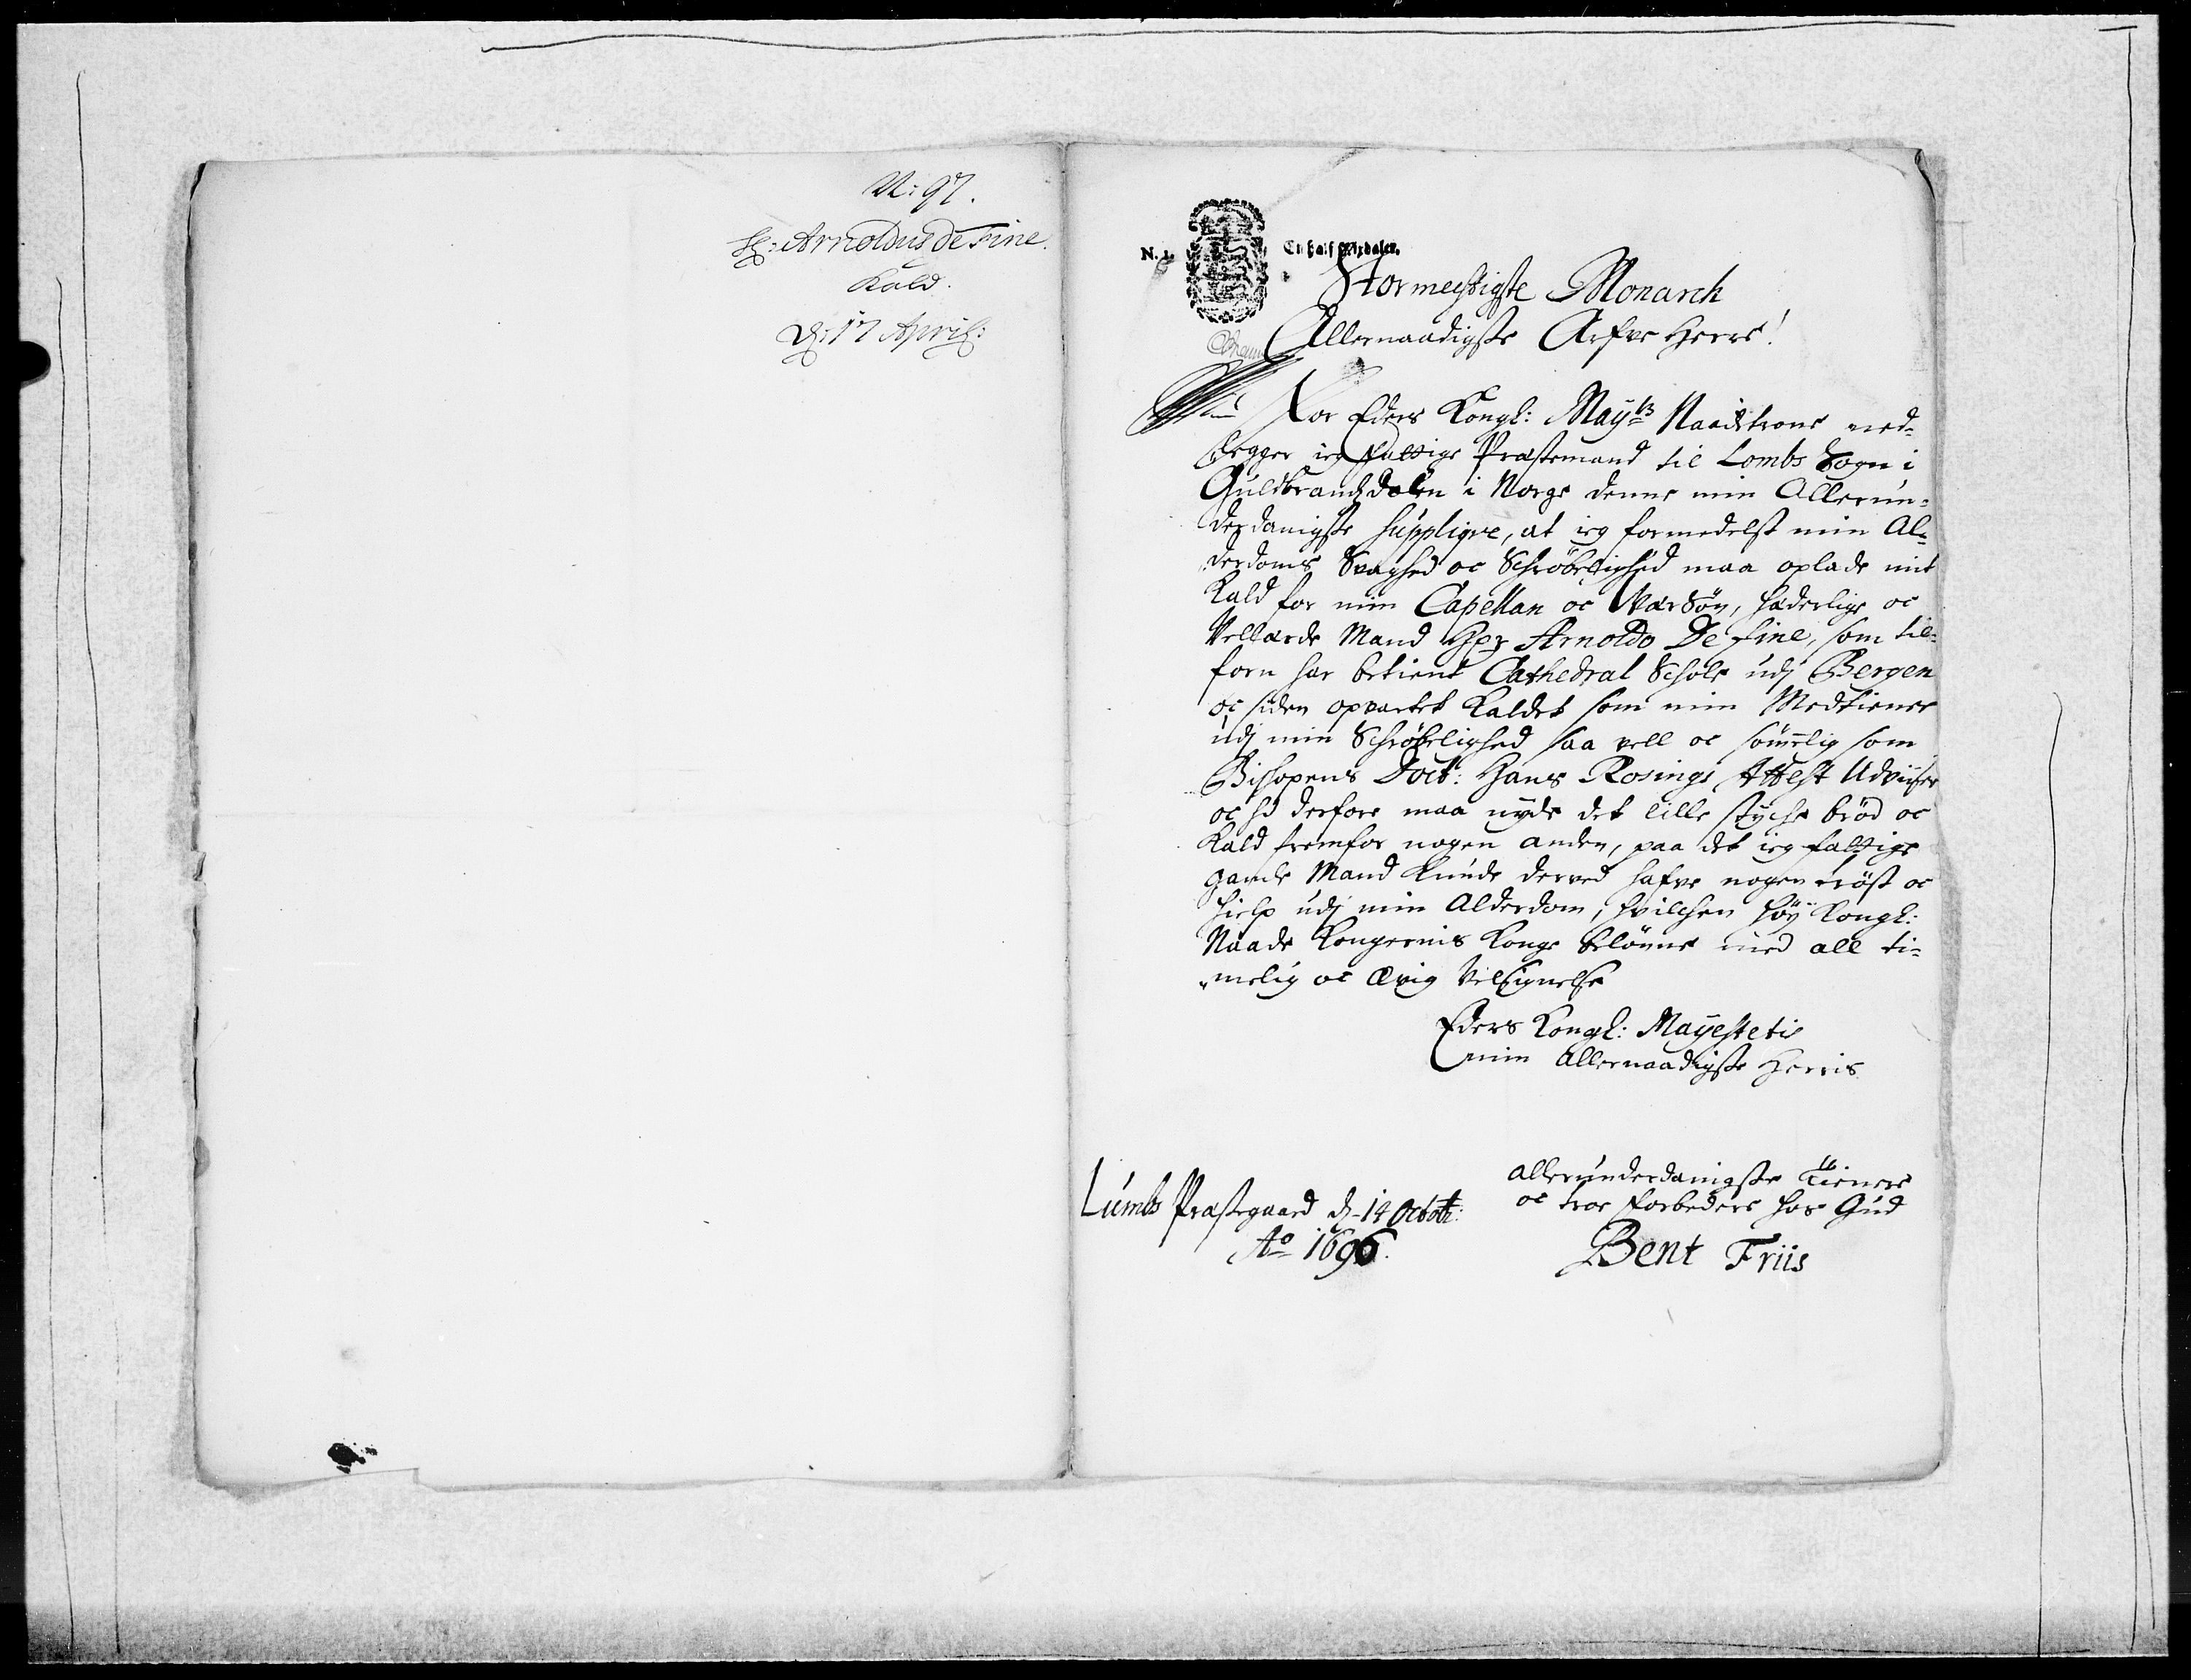 N: 97.
Hr: Arnoldus de Fine.
Kald.
D: 17 April:
N. 1.
En half Rixdaler.
Stormechtigste Monarch
Allernaadigste Arfve Herre!
For Eders Kongl: Mayts Naadstrone ned-
legger ieg fattige Præstemand til Lombs Sogn i
Guldbrandzdalen i Norge denne min Allerun-
derdanigste supplique, at ieg formedelst min Al-
derdoms Svaghed oc Schrøbelighed maa oplade mit
Kald for min Capellan oc Værsøn, hæderlige oc
Vellærde Mand Hr. Arnoldo De fine, som til-
forn har betient Cathedral Schole udj Bergen
oc siden opvartet Kaldet som min Medtienere
udj min Schrøbelighed saa vell oc sømmelig som
Bishopens Doct: Hans Rosings Attest Udviiser
oc hd derfore maa nyde det lille styche brød oc
Kald fremfor nogen anden, paa det ieg fattige
gamle Mand kunde derved hafve nogen trøst oc
hielp udj min Alderdom, hvilchen høy Kongl:
Naade Kongernis Konge belønne med all ti-
melig oc Ævig Velsignelse
Eders Kongl: Mayestetis
min Allernaadigste Herris
allerunderdanigste Tienere
oc troe forbedere hos Gud
Bent Friis
Lumbs Præstegaard d. 14 Octobr:
Ao 1696.